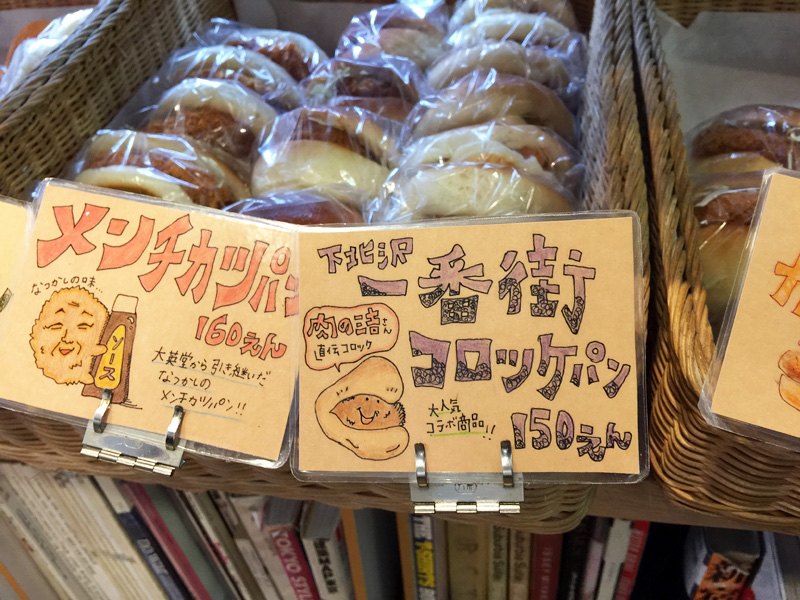 メンチカツパン
160えん
なつかしの味…
ソース
大英堂から引き継いだ
なつかしの
メンチカツパン!!
下北沢
一番街
コロッケパン
150えん
肉の
さん
直伝コロッケ
大人気
コラボ商品!!
TOKYO STYLE